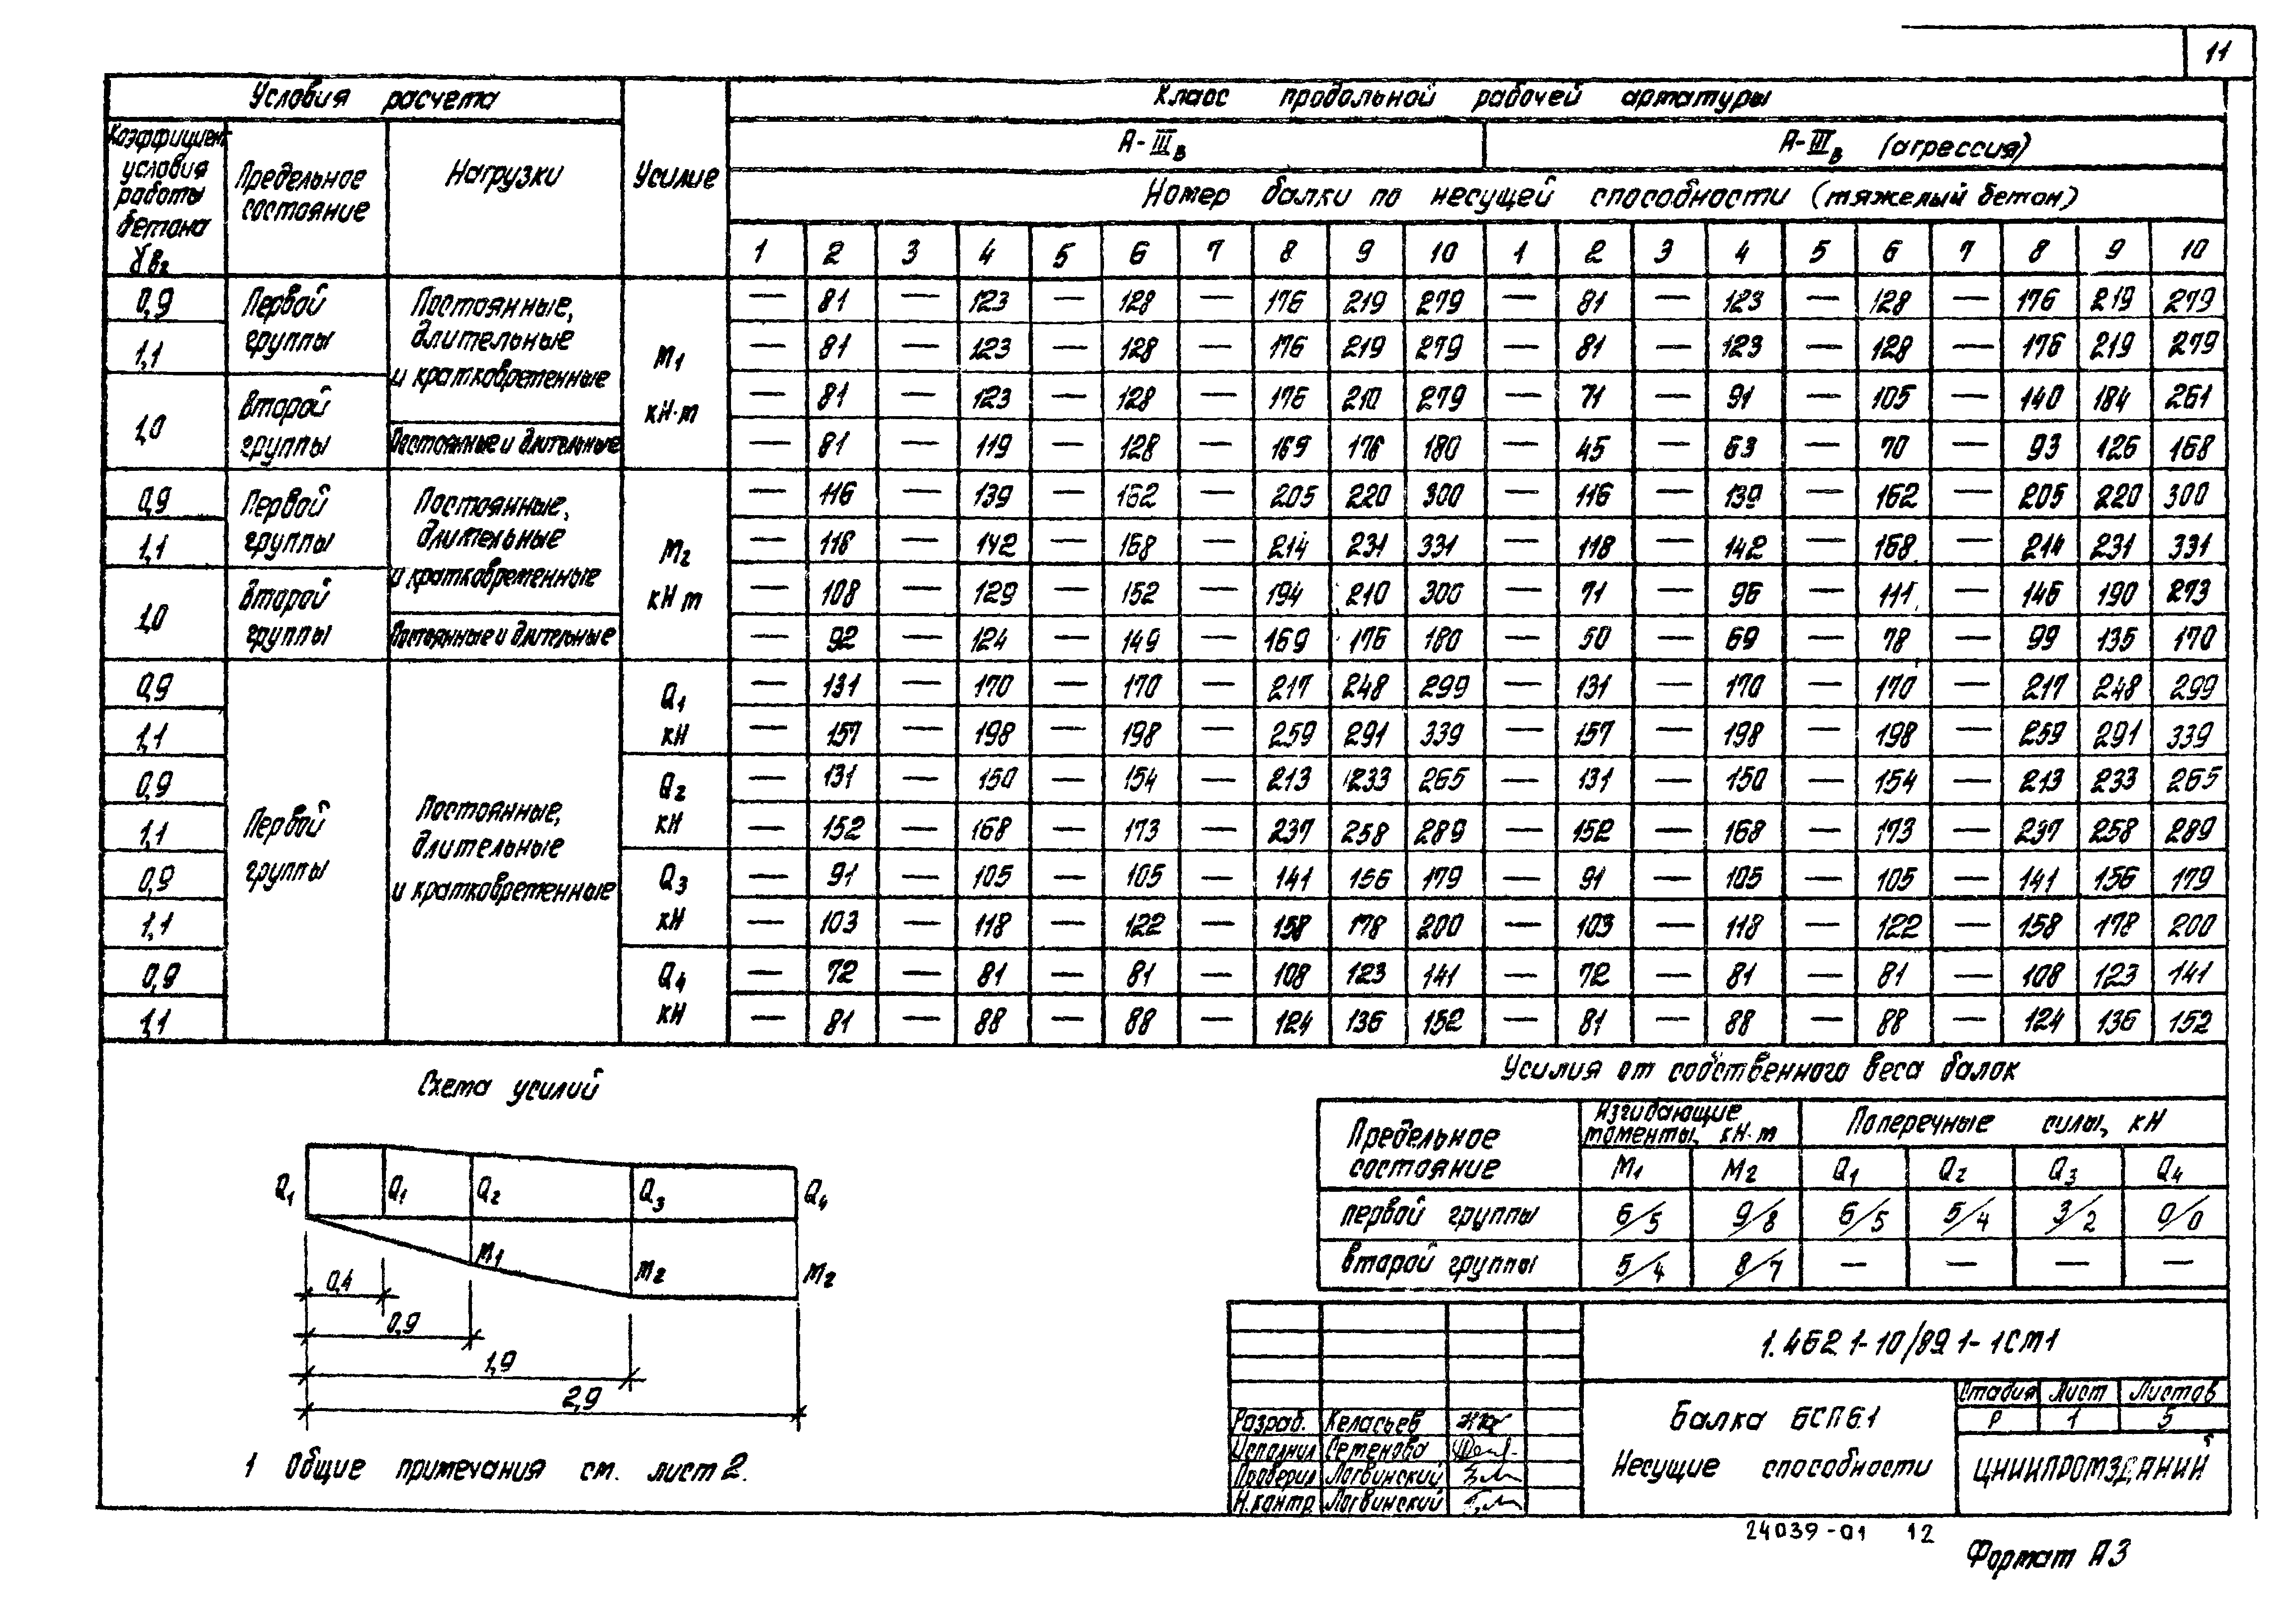 11
Условия расчета
Усилие
Класс продольной рабочей арматуры
Коэффициент условия работы бетона γв₂
Предельное состояние
Нагрузки
А-IIIв
А-IIIв (агрессия)
Номер балки по несущей способности (тяжелый бетон)
1 2 3 4 5 6 7 8 9 10 1 2 3 4 5 6 7 8 9 10
0,9 Первой группы Постоянные, длительные и кратковременные М1 кН·м — 81 — 123 — 128 — 176 219 279 — 81 — 123 — 128 — 176 219 279
1,1 — 81 — 123 — 128 — 176 219 279 — 81 — 123 — 128 — 176 219 279
1,0 Второй группы — 81 — 123 — 128 — 176 210 279 — 71 — 91 — 105 — 140 184 261
Постоянные и длительные — 81 — 119 — 128 — 169 176 180 — 45 — 63 — 70 — 93 126 168
0,9 Первой группы Постоянные, длительные и кратковременные М2 кН м — 116 — 139 — 162 — 205 220 300 — 116 — 139 — 162 — 205 220 300
1,1 — 118 — 142 — 168 — 214 231 331 — 118 — 142 — 168 — 214 231 331
1,0 Второй группы — 108 — 129 — 152 — 194 210 300 — 71 — 96 — 111 — 146 190 273
Постоянные и длительные — 92 — 124 — 149 — 169 176 180 — 50 — 69 — 78 — 99 135 170
0,9 Первой группы Постоянные, длительные и кратковременные Q1 кН — 131 — 170 — 170 — 217 248 299 — 131 — 170 — 170 — 217 248 299
1,1 — 157 — 198 — 198 — 259 291 339 — 157 — 198 — 198 — 259 291 339
0,9 Q2 кН — 131 — 150 — 154 — 213 233 265 — 131 — 150 — 154 — 213 233 265
1,1 — 152 — 168 — 173 — 237 258 289 — 152 — 168 — 173 — 237 258 289
0,9 Q3 кН — 91 — 105 — 105 — 141 156 179 — 91 — 105 — 105 — 141 156 179
1,1 — 103 — 118 — 122 — 158 178 200 — 103 — 118 — 122 — 158 178 200
0,9 Q4 кН — 72 — 81 — 81 — 108 123 141 — 72 — 81 — 81 — 108 123 141
1,1 — 81 — 88 — 88 — 124 136 152 — 81 — 88 — 88 — 124 136 152
Схема усилий
Q1 Q1 Q2 Q3 Q4
М1 М2 М2
0,4
0,9
1,9
2,9
1 Общие примечания см. лист 2.
Усилия от собственного веса балок
Предельное состояние
Изгибающие моменты, кН·м
Поперечные силы, кН
М1 М2 Q1 Q2 Q3 Q4
первой группы 6/5 9/8 6/5 5/4 3/2 0/0
второй группы 5/4 8/7 — — — —
1.462 1-10/89 1-1СМ1
Балка БСП6.1
Несущие способности
Стадия Лист Листов
Р 1 5
ЦНИИПРОМЗДАНИЙ
Разраб. Келасьев
Исполнил Семенова
Проверил Логвинский
Н.контр. Логвинский
24039-01 12
Формат А3